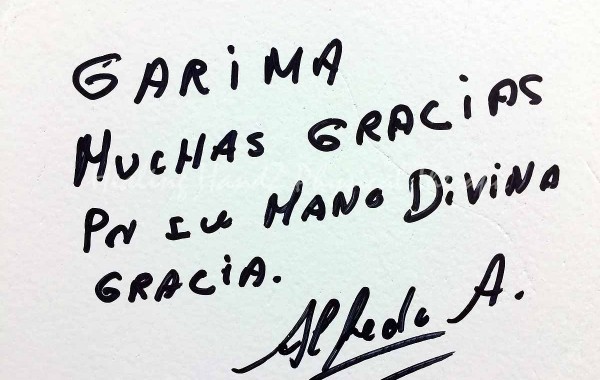 GARiMA
MUCHAS GRACiAS
Pr su MANO DiViNA
GRACiA.
Alfredo A.